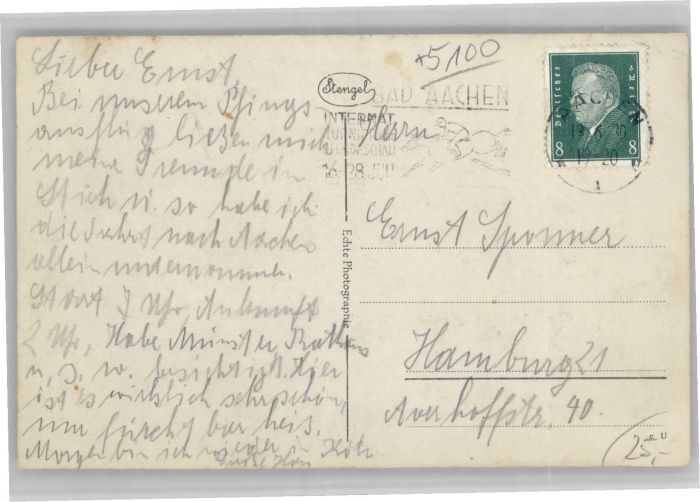 Lieber Ernst,
Bei unserem Pfings
ausflug ließen mich
meine Freunde in
Stich u. so habe ich
die Fahrt nach Aachen
allein unternommen.
Start 7 Uhr, Ankunft
2 Uhr, Habe Münster Rathaus
u. s. w. besichtigt. Hier
ist es wirklich sehr schön,
nur furchtbar heis.
Morgen bin ich wieder in Köln
*5100
Stengel
BAD AACHEN
INTERNAT.
16-28 JULI
Echte Photographie
AACHEN
Deutsches Reich
8 8
Herrn
Ernst Sponner
Hamburg 21
Averhoffstr. 40.
25,-